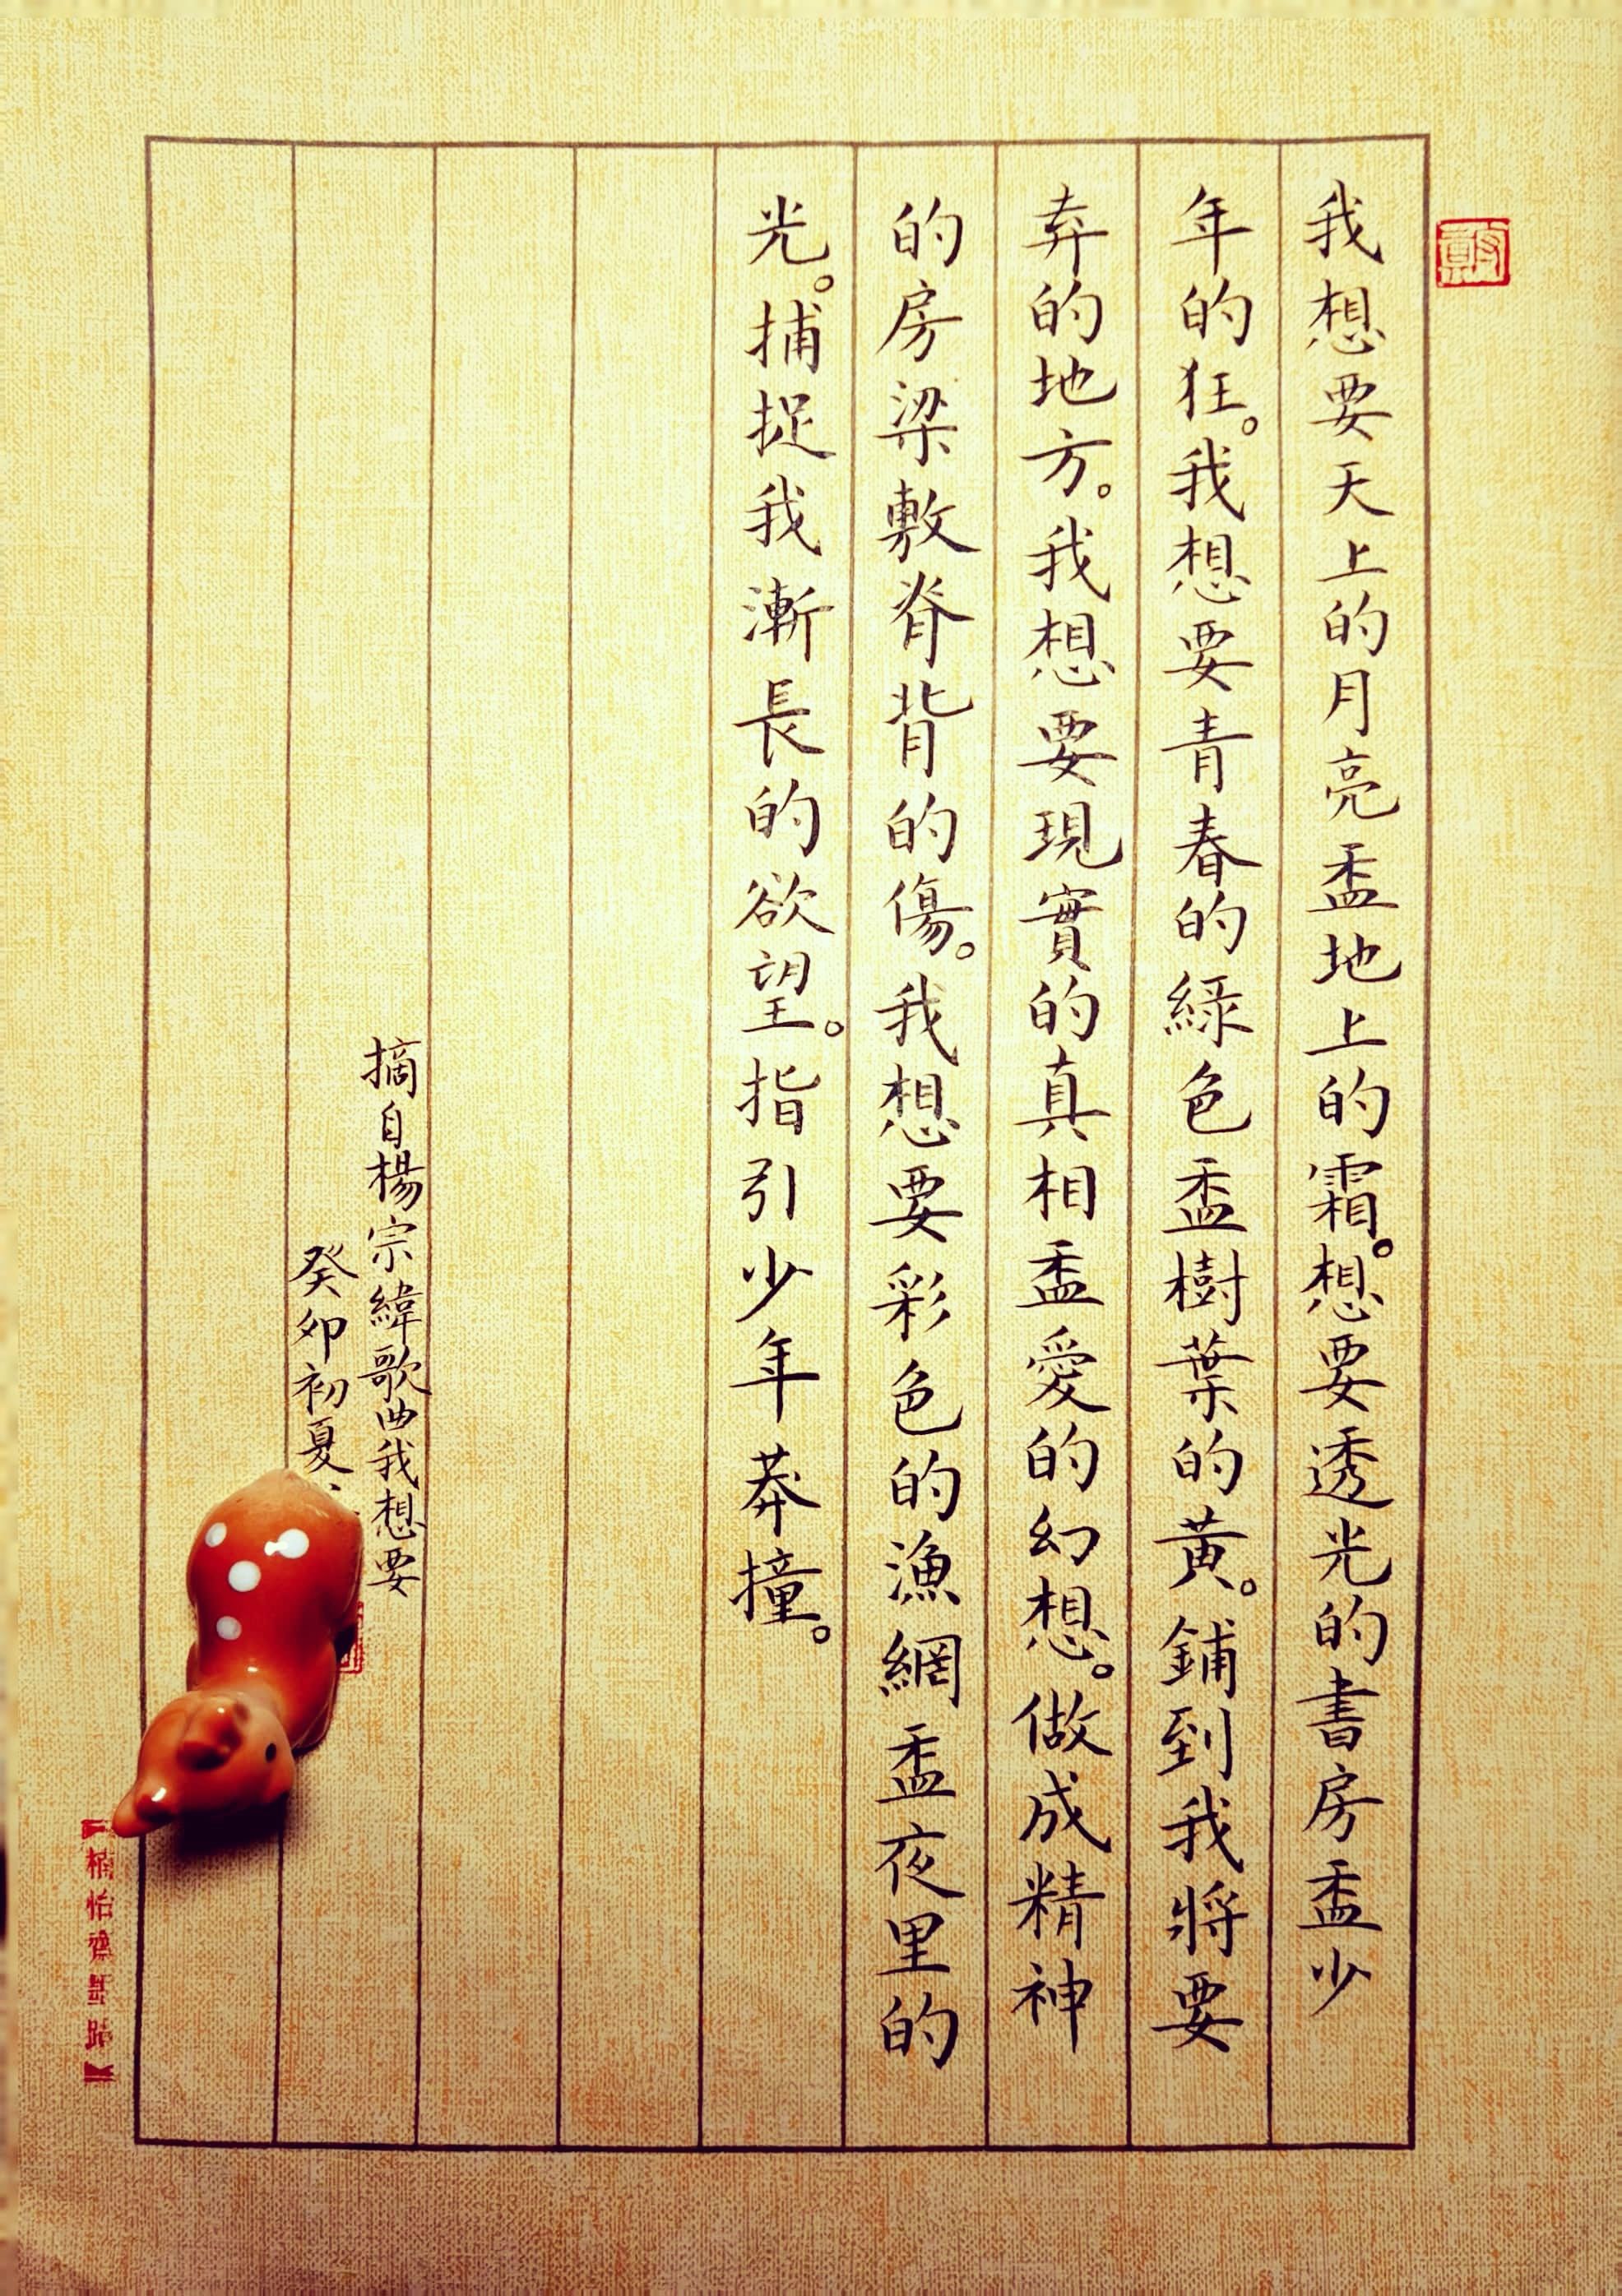 我想要天上的月亮盉地上的霜。想要透光的書房盉少
年的狂。我想要青春的綠色盉樹葉的黃。鋪到我將要
奔的地方。我想要現實的真相盉愛的幻想。做成精神
的房梁敷脊背的傷。我想要彩色的漁網盉夜里的
光。捕捉我漸長的欲望。指引少年莽撞。
摘自楊宗緯歌曲我想要
癸卯初夏